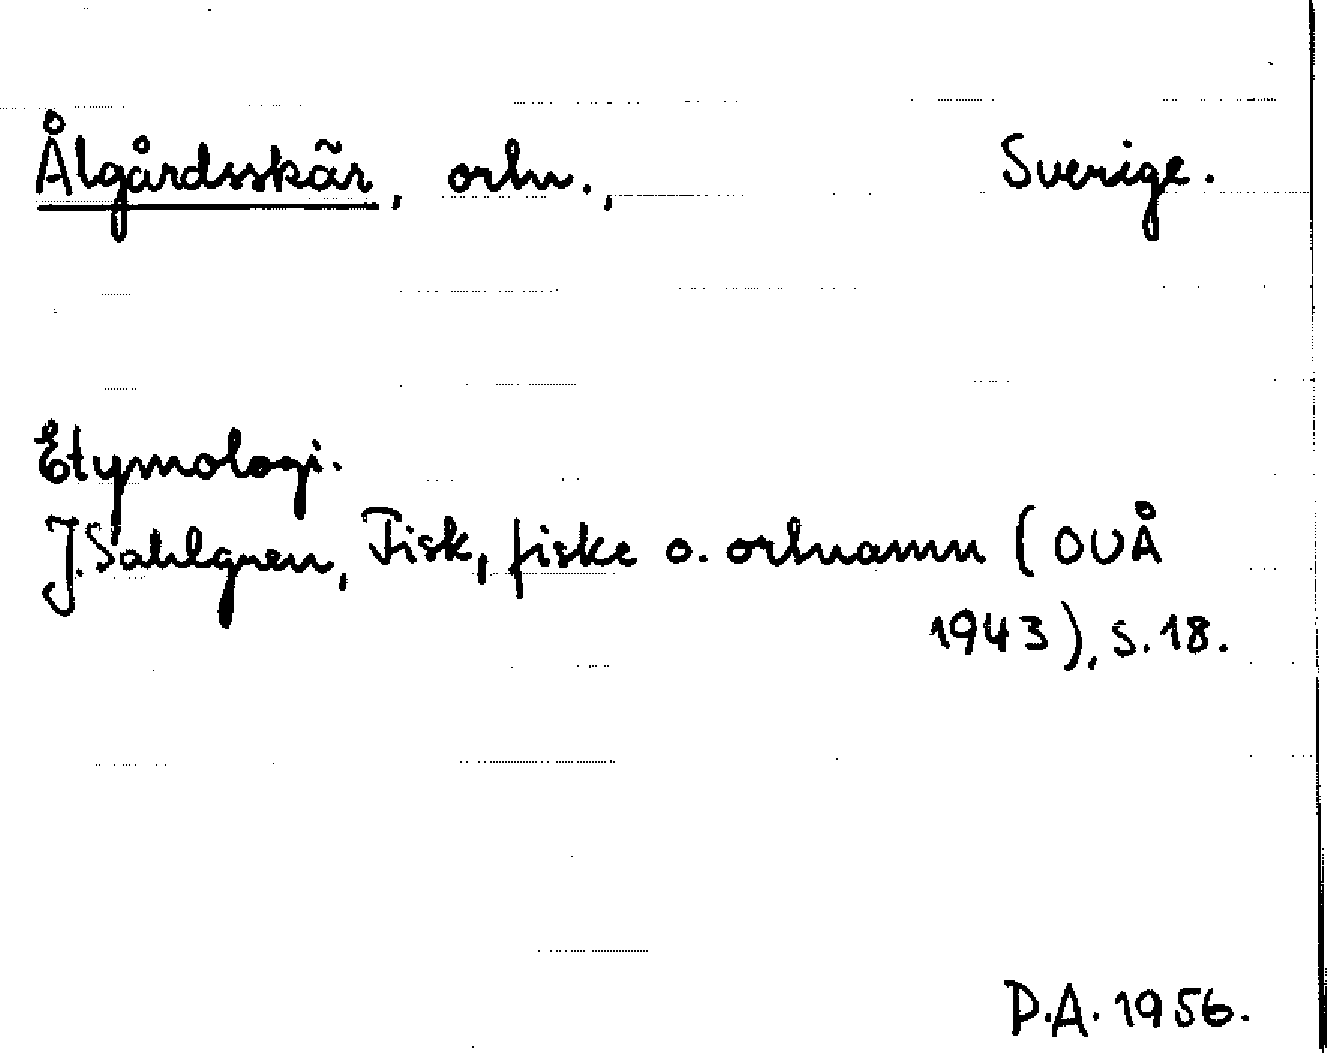 Ålgårdsskär, ortn., Sverige.
Etymologi.
J. Sahlgren, Fisk, fiske o. ortnamn (OUÅ
1943), s. 18.
P.A. 1956.